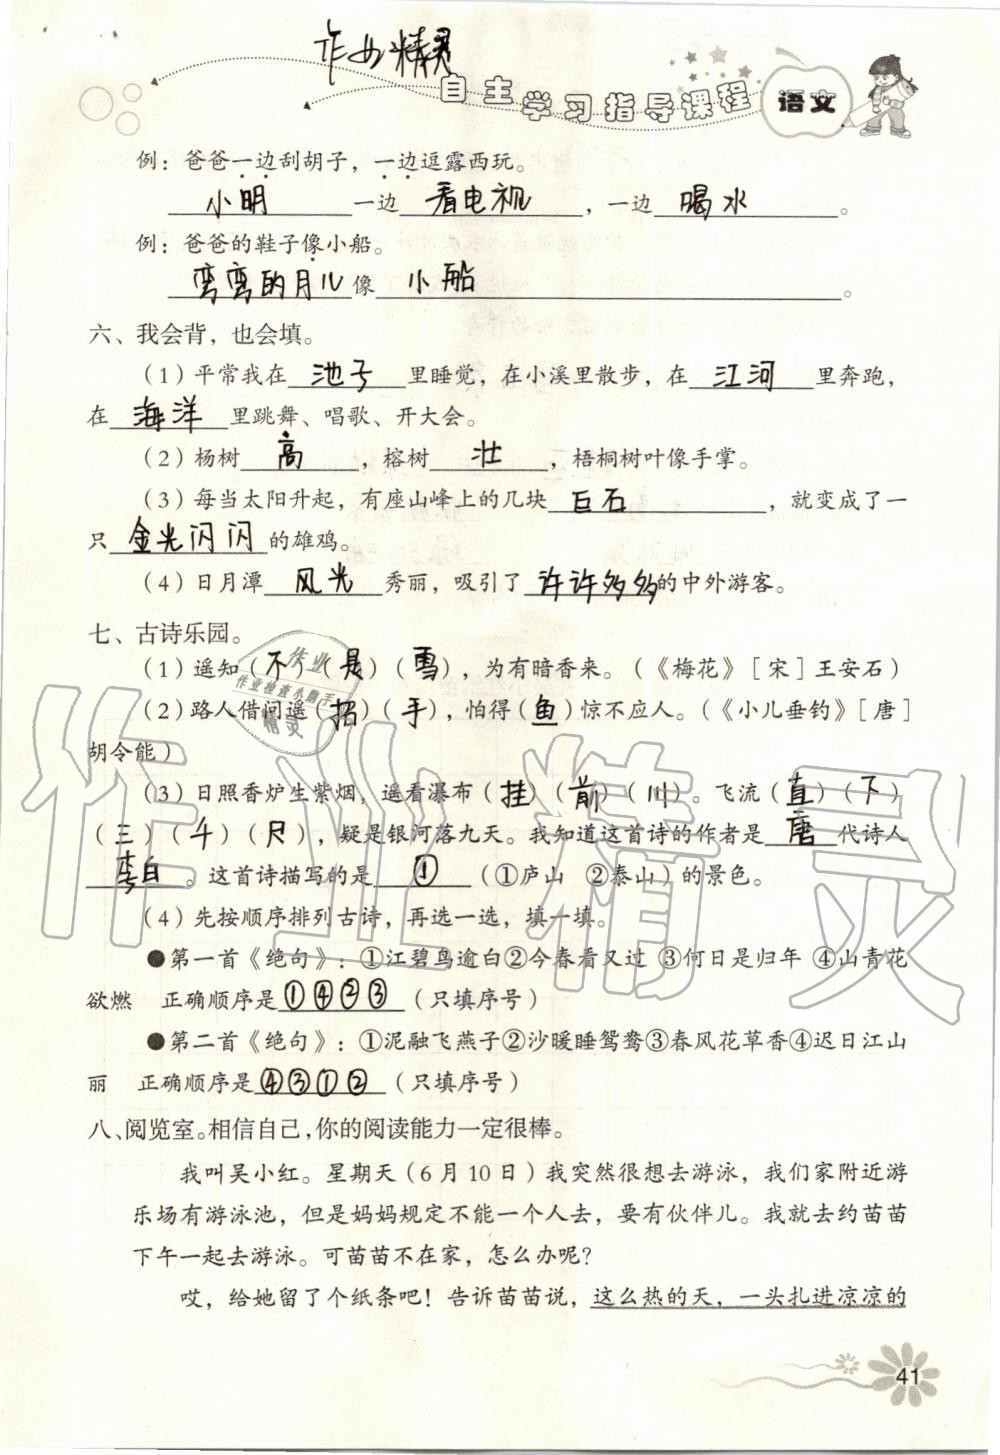 作业精灵
自主学习指导课程 语文
例：爸爸一边刮胡子，一边逗露西玩。
小明一边看电视，一边喝水。
例：爸爸的鞋子像小船。
弯弯的月儿像小船。
六、我会背，也会填。
（1）平常我在池子里睡觉，在小溪里散步，在江河里奔跑，
在海洋里跳舞、唱歌、开大会。
（2）杨树高，榕树壮，梧桐树叶像手掌。
（3）每当太阳升起，有座山峰上的几块巨石，就变成了一
只金光闪闪的雄鸡。
（4）日月潭风光秀丽，吸引了许许多多的中外游客。
七、古诗乐园。
（1）遥知（不）（是）（雪），为有暗香来。（《梅花》［宋］王安石）
（2）路人借问遥（招）（手），怕得（鱼）惊不应人。（《小儿垂钓》［唐］
胡令能）
（3）日照香炉生紫烟，遥看瀑布（挂）（前）（川）。飞流（直）（下）
（三）（千）（尺），疑是银河落九天。我知道这首诗的作者是唐代诗人
李白。这首诗描写的是①（①庐山　②泰山）的景色。
（4）先按顺序排列古诗，再选一选，填一填。
●第一首《绝句》：①江碧鸟逾白②今春看又过 ③何日是归年 ④山青花
欲燃　正确顺序是①④②③（只填序号）
●第二首《绝句》：①泥融飞燕子②沙暖睡鸳鸯③春风花草香④迟日江山
丽　正确顺序是④③①②（只填序号）
八、阅览室。相信自己，你的阅读能力一定很棒。
我叫吴小红。星期天（6月10日）我突然很想去游泳，我们家附近游
乐场有游泳池，但是妈妈规定不能一个人去，要有伙伴儿。我就去约苗苗
下午一起去游泳。可苗苗不在家，怎么办呢？
哎，给她留了个纸条吧！告诉苗苗说，这么热的天，一头扎进凉凉的
41
作业精灵
作业
作业检查小助手
精灵